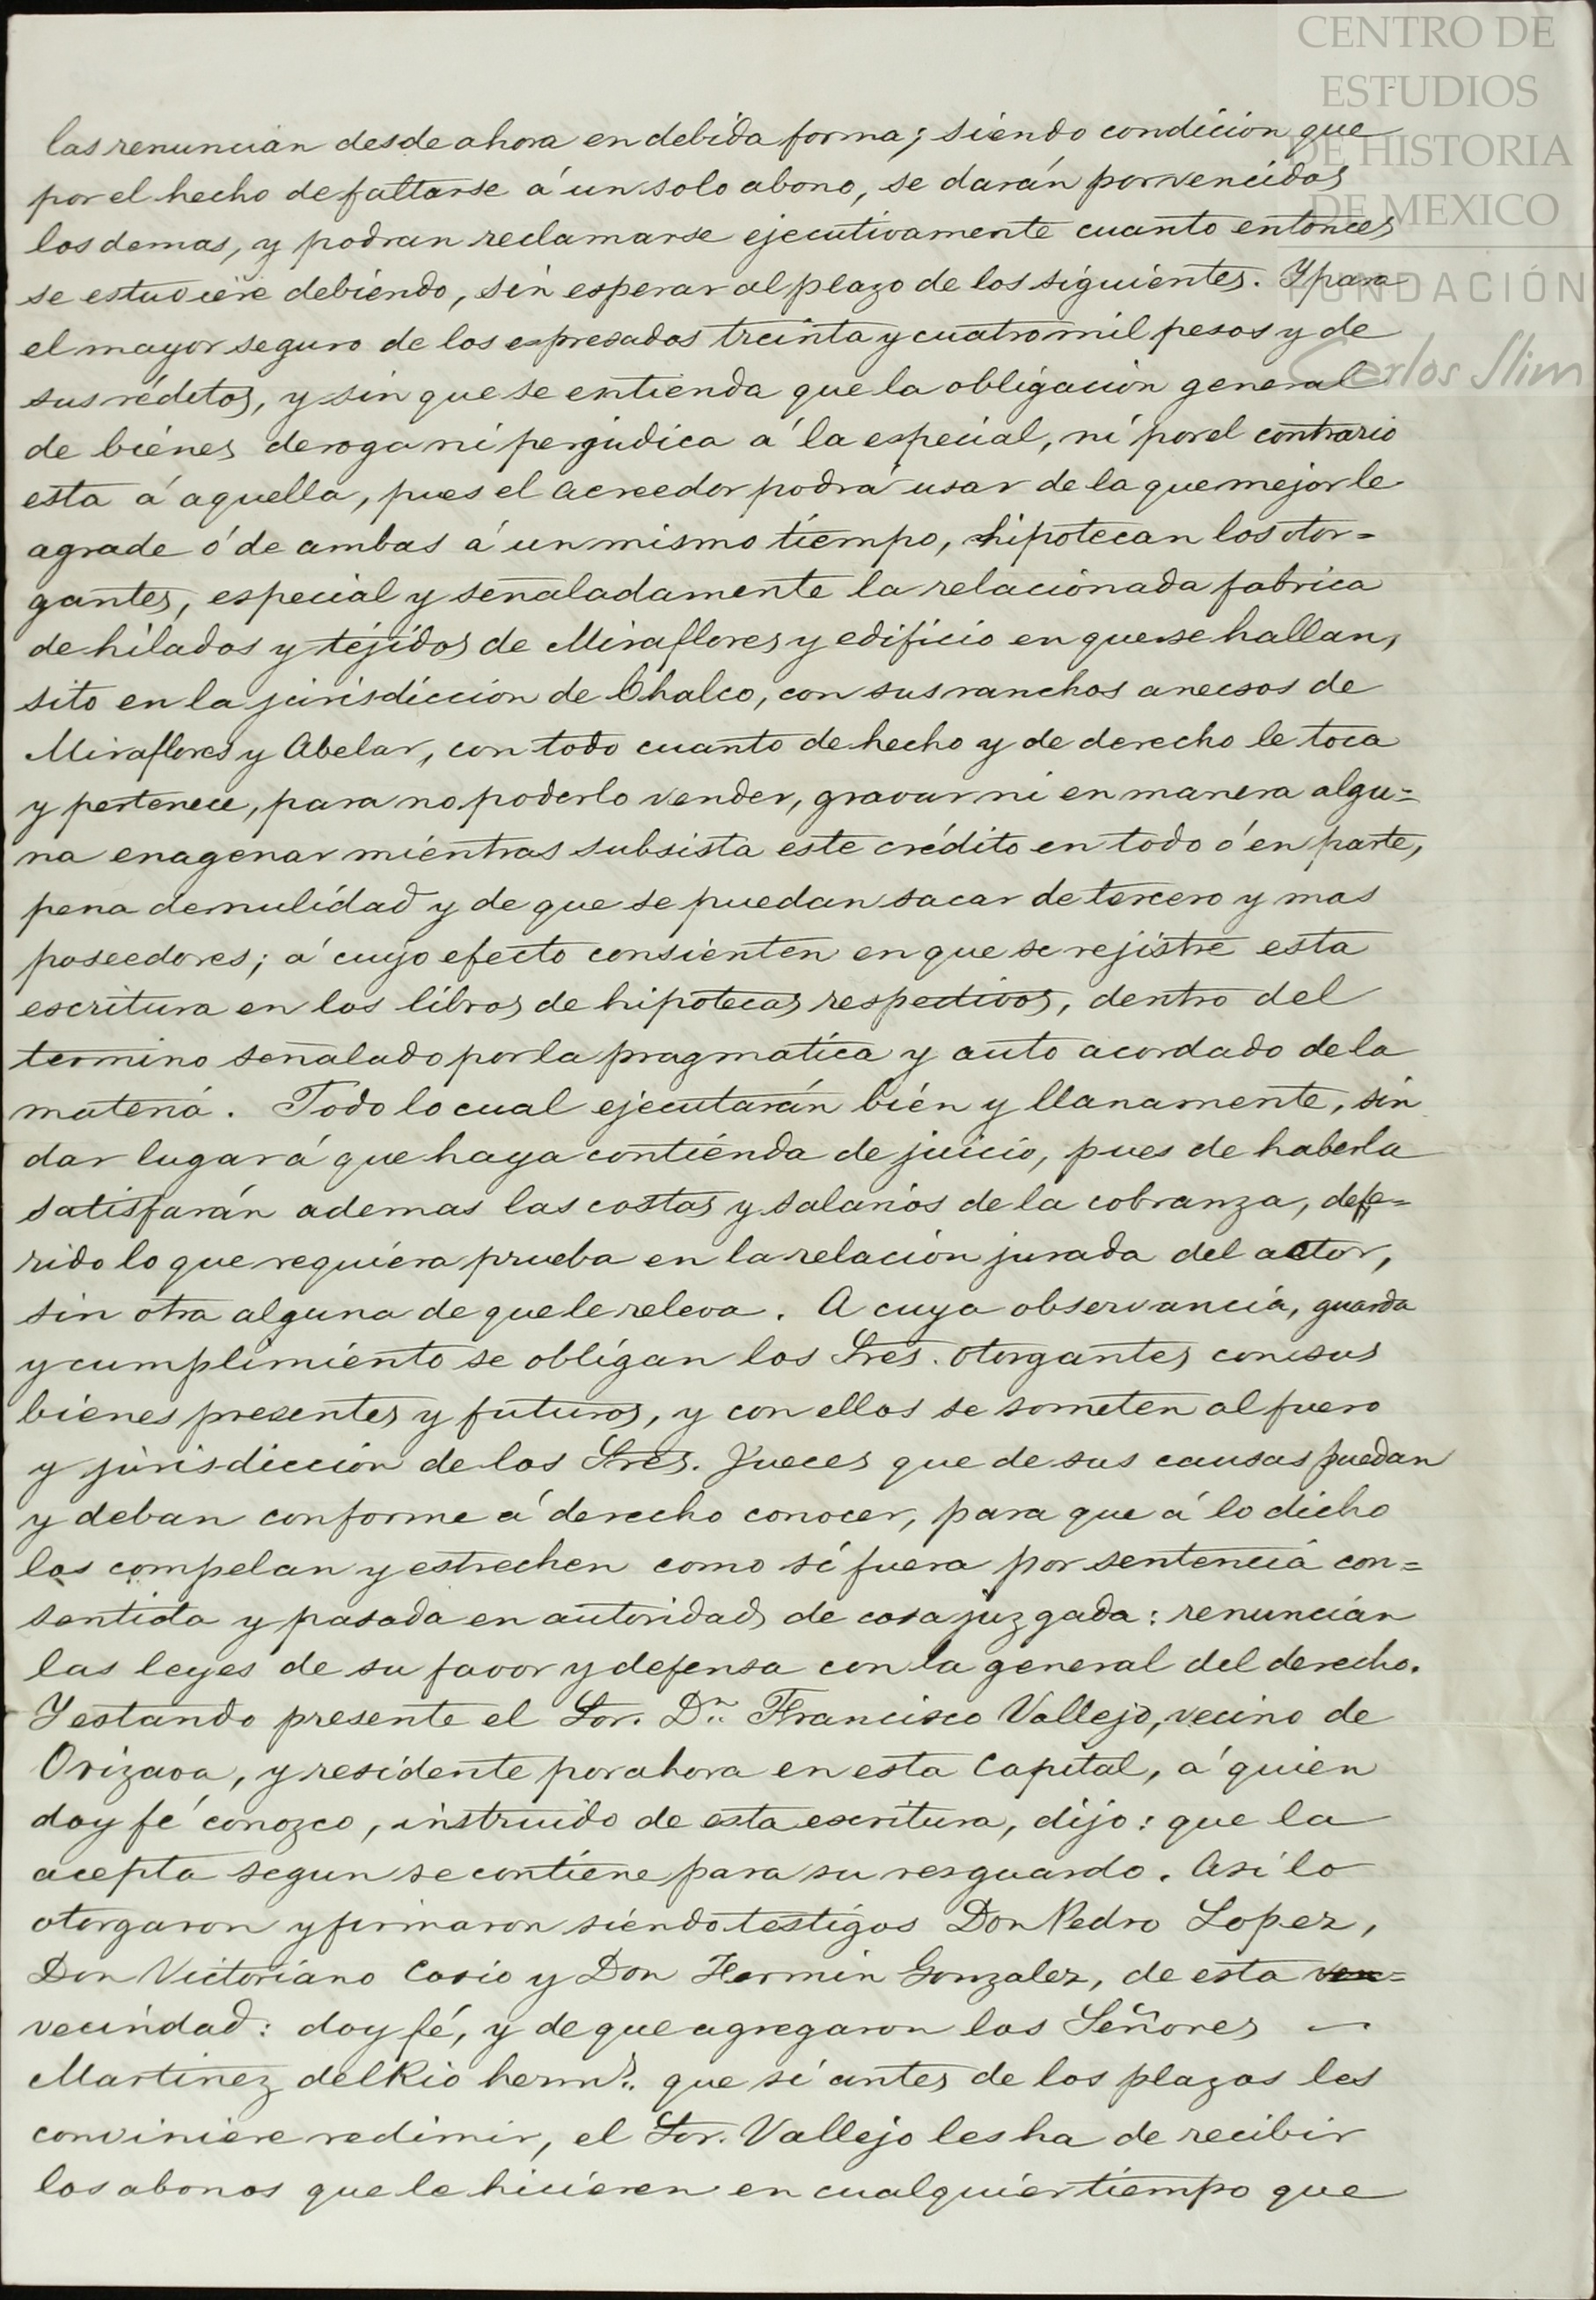 CENTRO DE
ESTUDIOS
DE HISTORIA
DE MEXICO
FUNDACIÓN
Carlos Slim
las renuncian desde ahora en debida forma; siendo condicion que
por el hecho de faltarse á un solo abono, se darán por vencidos
los demas, y podran reclamarse ejecutivamente cuanto entonces
se estuviere debiendo, sin esperar al plazo de los siguientes. Y para
el mayor seguro de los expresados treinta y cuatro mil pesos y de
sus réditos, y sin que se entienda que la obligacion general
de bienes deroga ni perjudica á la especial, ni por el contrario
esta á aquella, pues el acreedor podrá usar de la que mejor le
agrade ó de ambas á un mismo tiempo, hipotecan los otor=
gantes, especial y señaladamente la relacionada fabrica
de hilados y tejidos de Miraflores y edificio en que se hallan,
sito en la jurisdiccion de Chalco, con sus ranchos anecsos de
Miraflores y Abelar, con todo cuanto de hecho y de derecho le toca
y pertenece, para no poderlo vender, gravar ni en manera algu=
na enagenar mientras subsista este crédito en todo ó en parte,
pena de nulidad y de que se puedan sacar de tercero y mas
poseedores; á cuyo efecto consienten en que se rejistre esta
escritura en los libros de hipotecas respectivos, dentro del
termino señalado por la pragmatica y auto acordado de la
materia. Todo lo cual ejecutarán bien y llanamente, sin
dar lugar á que haya contienda de juicio, pues de haberla
satisfarán ademas las costas y salarios de la cobranza, defe=
rido lo que requiera prueba en la relacion jurada del actor,
sin otra alguna de que le releva. A cuya observancia, guarda
y cumplimiento se obligan los Sres. otorgantes con sus
bienes presentes y futuros, y con ellos se someten al fuero
y jurisdiccion de los Sres. Jueces que de sus causas puedan
y deban conforme á derecho conocer, para que á lo dicho
los compelan y estrechen como si fuera por sentencia con=
sentida y pasada en autoridad de cosa juzgada: renuncian
las leyes de su favor y defensa con la general del derecho.
Y estando presente el Sor. Dn. Francisco Vallejo, vecino de
Orizava, y residente por ahora en esta Capital, á quien
doy fé conozco, instruido de esta escritura, dijo: que la
acepta segun se contiene para su resguardo. Asi lo
otorgaron y firmaron siendo testigos Don Pedro Lopez,
Don Victoriano Cosio y Don Fermin Gonzalez, de esta ven=
vecindad: doy fé, y de que agregaron los Señores —
Martinez del Rio herms. que si antes de los plazos les
conviniere redimir, el Sor. Vallejo les ha de recibir
los abonos que le hicieren en cualquier tiempo que